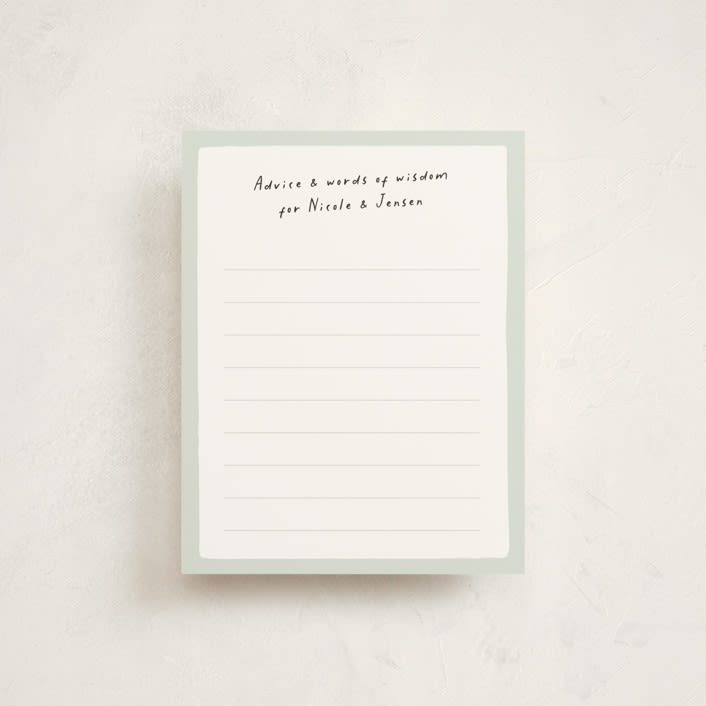 Advice & words of wisdom
for Nicole & Jensen